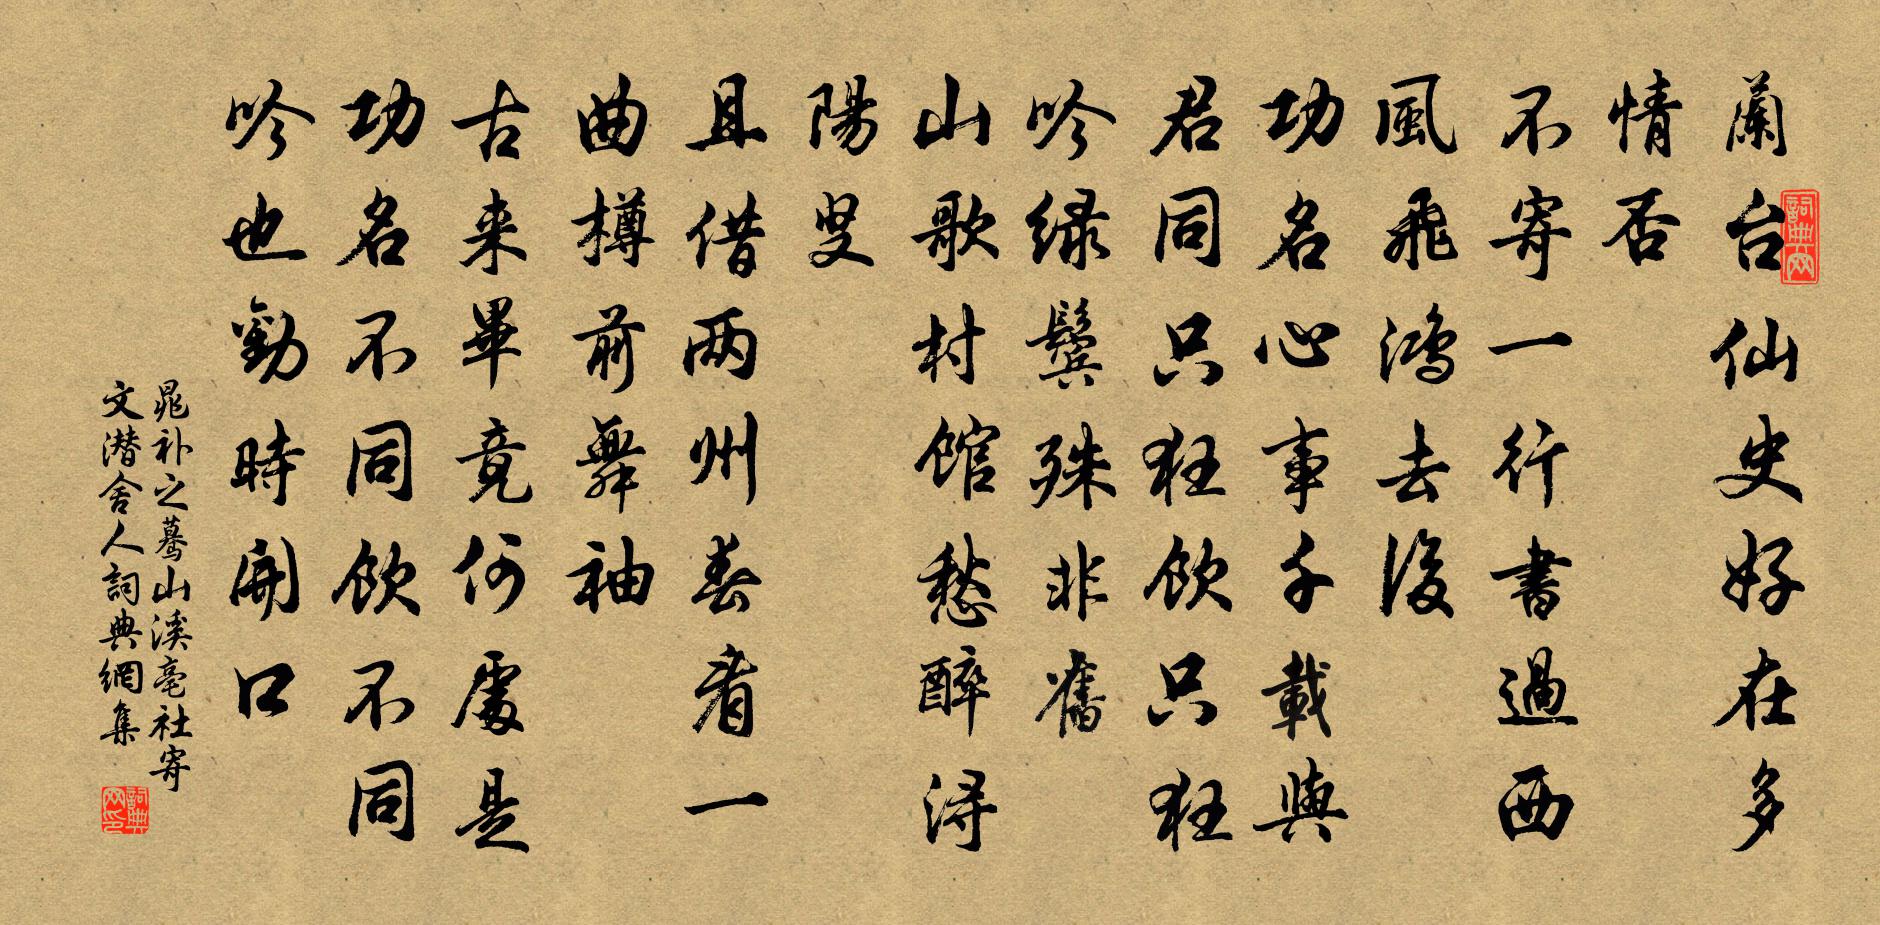 蘭台仙史好在多
情否
不寄一行書過西
風飛鴻去後
功名心事千載與
君同只狂飲只狂
吟緑鬢殊非舊
山歌村館愁醉潯
陽叟
且借两州春看一
曲樽前舞袖
古来畢竟何處是
功名不同飲不同
吟也勸時開口
晁补之驀山溪亳社寄
文潜舍人詞典網集
詞典网
詞典网印